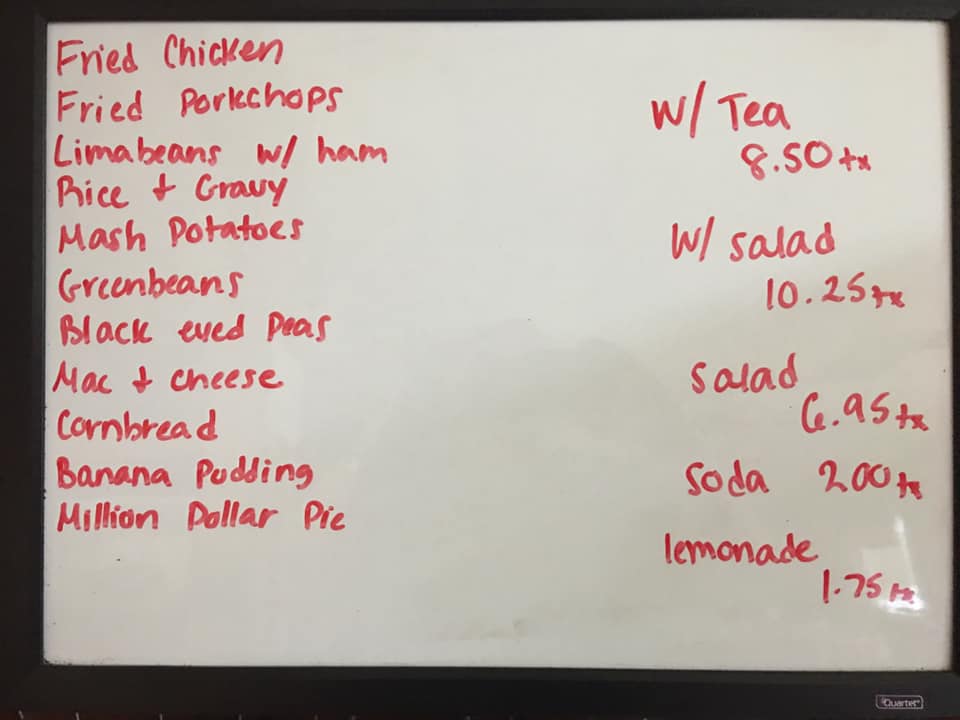 Fried Chicken
Fried Porkchops
Limabeans w/ ham
Rice + Gravy
Mash Potatoes
Greenbeans
Black eyed Peas
Mac + cheese
Cornbread
Banana Pudding
Million Dollar Pie
W/ Tea
8.50 tx
W/ salad
10.25 tx
salad
6.95 tx
soda 2.00 tx
lemonade
1.75 tx
Quartet